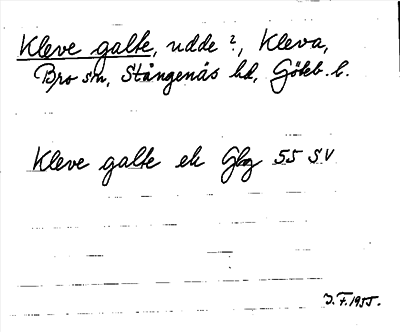 Kleve galte, udde ?, Kleva,
Bro sn, Stångenäs hd, Göteb. l.
Kleve galte ek Gbg 55 SV
J.F. 1955.